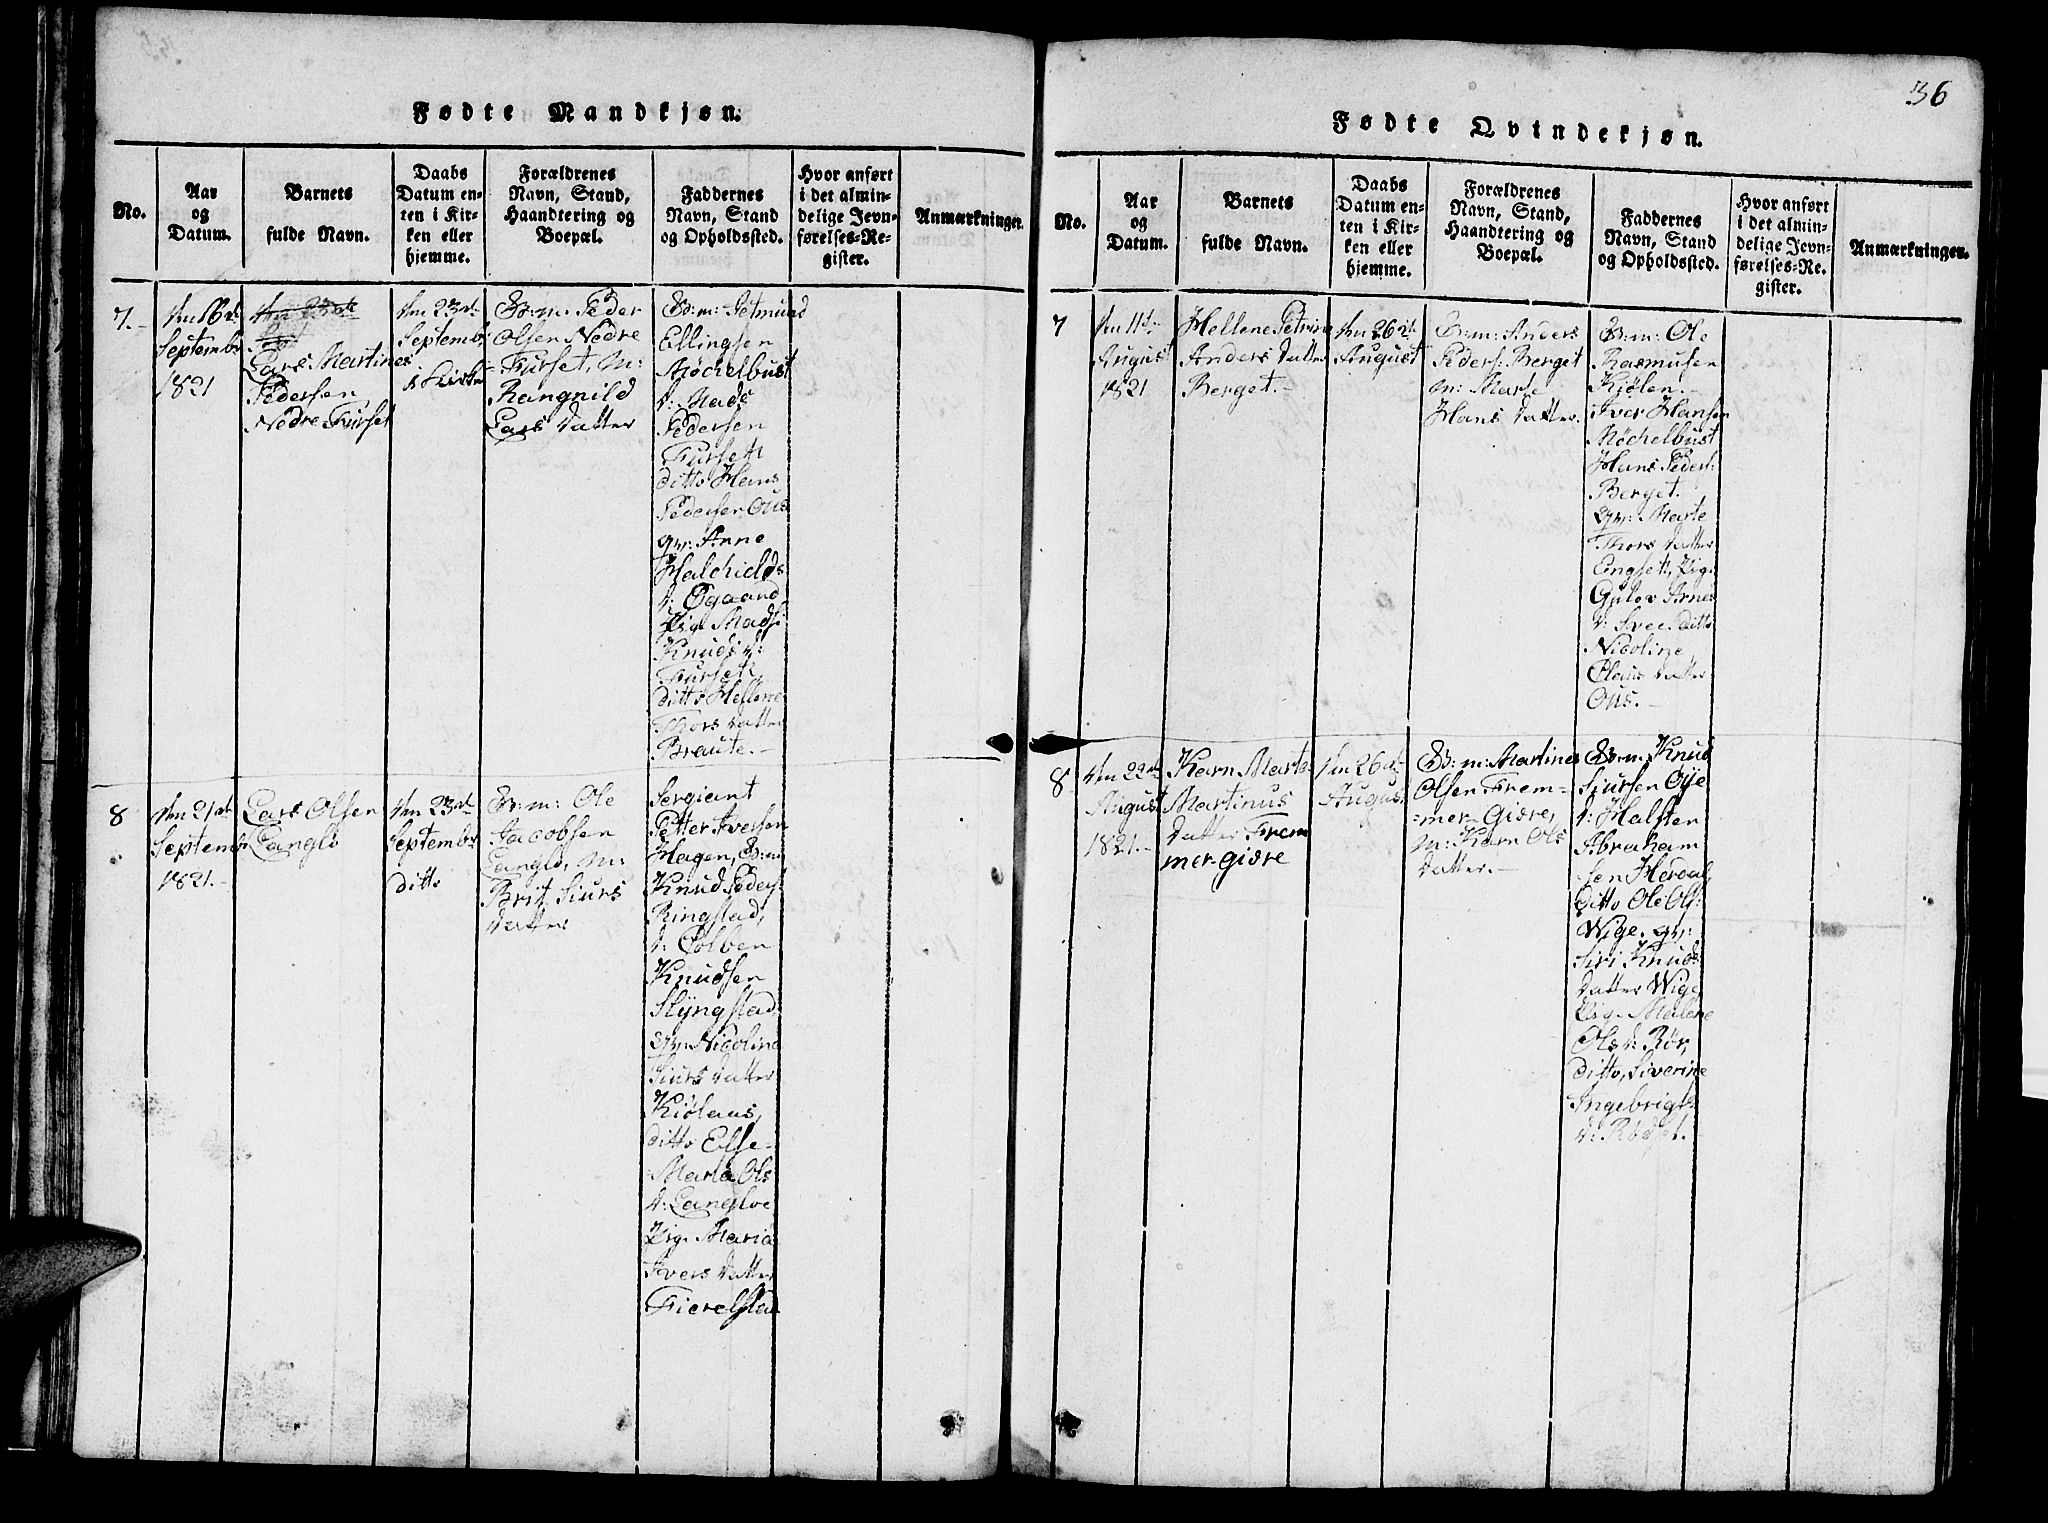 36
Fødte Mandkjøn.
No.
Aar
og
Datum.
Barnets
fulde Navn.
Daabs
Datum en-
ten i Kir-
ken eller
hjemme.
Forældrenes
Navn, Stand,
Haandtering og
Boepæl.
Faddernes
Navn, Stand
og Opholdssted.
Hvor anført
i det almin-
delige Jevn-
førelses-Re-
gister.
Anmærkninger.
7.
den 16de
September
1821
Lars Martines
Pedersen
Nedre Furset
den 23de
Septembr
i Kirke
B:m: Peder
Olsen Nedre
Furset, M:
Rangnild
Lars datter
B:m:
Ellingsen
Møchelbust
d: Mads
Pedersen
Furset
ditto Hans
Pedersen Ous
gv: Anne
Halchields
d: Øgaard
Pig. Mads:
Knuds d:
Furset,
ditto Hellene
Thors datter
Braute.
8
den 21de
Septemb
1821.
Lars Olsen
Langlo
den 23de
Septembr
ditto
B:m: Ole
Jacobsen
Langlo, M:
Brit Siurs
datter
Sergiant
Petter Iversen
Hagen, B:m:
Knud Peders:
Ringstad,
d: Colben
Knudsen
Slyngstad,
gv: Nicoline
Siurs datter
Kiølaas,
ditto Else
Maria Ols
d: Langloe
Pig. Maria
Ivers datter
Fierelstad
Fødte Qvindekjøn.
No.
Aar
og
Datum.
Barnets
fulde Navn.
Daabs
Datum en-
ten i Kir-
ken eller
hjemme.
Forældrenes
Navn, Stand,
Haandtering og
Boepæl.
Faddernes
Navn, Stand
og Opholdssted.
Hvor anført
i det almin-
delige Jevn-
førelses-Re.
gister.
Anmærkninger.
7
den 11te
August
1821
Hellene Petrine
Anders datter
Berget.
den 26de
August
B:m: Anders
Peders: Berget
M: Marte
Hans datter.
B:m: Ole
Rasmusen
Kjølen
Iver Hansen
Møchelbust
Hans Peders:
Berget.
gv: Marte
Thors datter
Engset, Pig.
Gulov Arnes
d: Svee. ditto
Nicoline
Claus datter
Ous.
8
den 22de
August
1821.
Karn Marta
Martinus
datter Frem
mer-Giøre
den 26de
August
B:m: Martines
Olsen Frem-
=mer-Giøre,
M: Karn Ols
datter.
B:m. Knud
Siursen Oye
d: Halsten
Abraham
sen Herdal
ditto Ole Ols:
Wige. gv:
Siri Knuds
datter Wige
Pig. Malene
Ols d: Rør,
ditto, Siverine
Ingebrigt
d: Rødset.